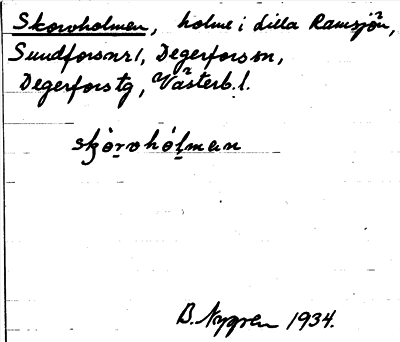 Skorvholmen, holme i Lilla Ramsjön,
Sundforsnr 1, Degerfors sn,
Degerfors tg, Västerb. l.
skòrvhól̥man
B. Nygren 1934.